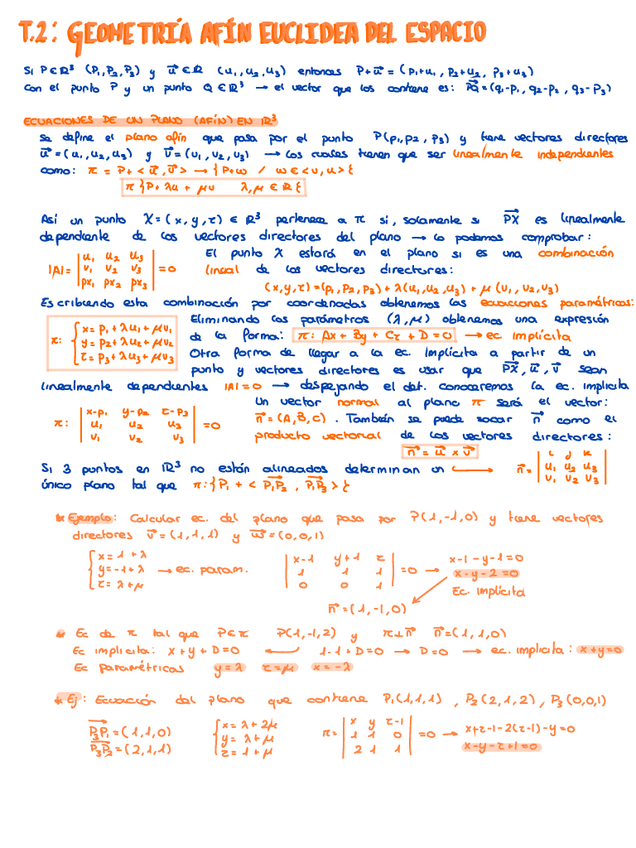 T.2: GEOMETRÍA AFÍN EUCLIDEA DEL ESPACIO
Si P∈ℝ³ (P₁,P₂,P₃) y u⃗∈ℝ (u₁,u₂,u₃) entonces P+u⃗=(p₁+u₁, p₂+u₂, p₃+u₃)
Con el punto P y un punto Q∈ℝ³ → el vector que los contiene es: PQ⃗=(q₁-p₁, q₂-p₂, q₃-p₃)
ECUACIONES DE UN PLANO (AFÍN) EN ℝ³
Se define el plano afín que pasa por el punto P(p₁,p₂,p₃) y tiene vectores directores
u⃗=(u₁,u₂,u₃) y v⃗=(v₁,v₂,v₃) → los cuales tienen que ser linealmente independientes
como: π = P+<u⃗,v⃗> → {P+w / w∈<v,u>}
π{P+λu+μv λ,μ∈ℝ}
Así un punto X=(x,y,z)∈ℝ³ pertenece a π si, solamente si PX⃗ es linealmente
dependiente de los vectores directores del plano → lo podemos comprobar:
|A|= | u₁ u₂ u₃ | v₁ v₂ v₃ | px₁ px₂ px₃ | =0
El punto X estará en el plano si es una combinación
lineal de los vectores directores:
(x,y,z)=(p₁,p₂,p₃)+λ(u₁,u₂,u₃)+μ(v₁,v₂,v₃)
Escribiendo esta combinación por coordenadas obtenemos las ecuaciones paramétricas:
π: { x=p₁+λu₁+μv₁
y=p₂+λu₂+μv₂
z=p₃+λu₃+μv₃
Eliminando los parámetros (λ,μ) obtenemos una expresión
de la forma: π: Ax+By+Cz+D=0 → ec implícita
Otra forma de llegar a la ec. implícita a partir de un
punto y vectores directores es usar que PX⃗,u⃗,v⃗ sean
linealmente dependientes |A|=0 → despejando el det. conoceremos la ec. implícita
π: | x-p₁ y-p₂ z-p₃ | u₁ u₂ u₃ | v₁ v₂ v₃ | =0
Un vector normal al plano π será el vector:
n⃗=(A,B,C). También se puede sacar n⃗ como el
producto vectorial de los vectores directores:
n⃗=u⃗ x v⃗
Si 3 puntos en ℝ³ no están alineados determinan un
único plano tal que π:{P₁+<P₁P₂⃗, P₁P₃⃗>}
n⃗= | i j k | u₁ u₂ u₃ | v₁ v₂ v₃ |
* Ejemplo: Calcular ec. del plano que pasa por P(1,-1,0) y tiene vectores
directores v⃗=(1,1,1) y w⃗=(0,0,1)
{ x=1+λ
y=-1+λ → ec. param.
z=λ+μ
| x-1 y+1 z | 1 1 1 | 0 0 1 | =0 → x-1-y-1=0
x-y-2=0
Ec. implícita
n⃗=(1,-1,0)
* Ec de π tal que P∈π P(1,-1,2) y π⊥n⃗ n⃗=(1,1,0)
Ec implícita: x+y+D=0 ← 1-1+D=0 → D=0 → ec. implícita: x+y=0
Ec paramétricas y=λ z=μ x=-λ
* Ej: Ecuación del plano que contiene P₁(1,1,1), P₂(2,1,2), P₃(0,0,1)
P₃P₁⃗=(1,1,0)
P₃P₂⃗=(2,1,1)
{ x=λ+2μ
y=λ+μ
z=1+μ
π= | x y z-1 | 1 1 0 | 2 1 1 | =0 → x+z-1-2(z-1)-y=0
x-y-z+1=0